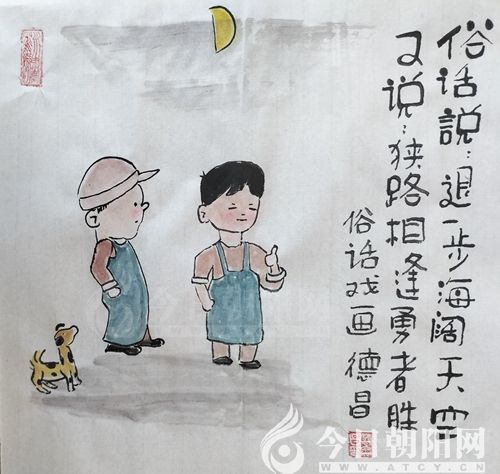 俗话說：退一步海阔天空
又说：狭路相逢勇者胜
俗话戏画 德昌
今日朝阳网
WWW.ATCY.CN